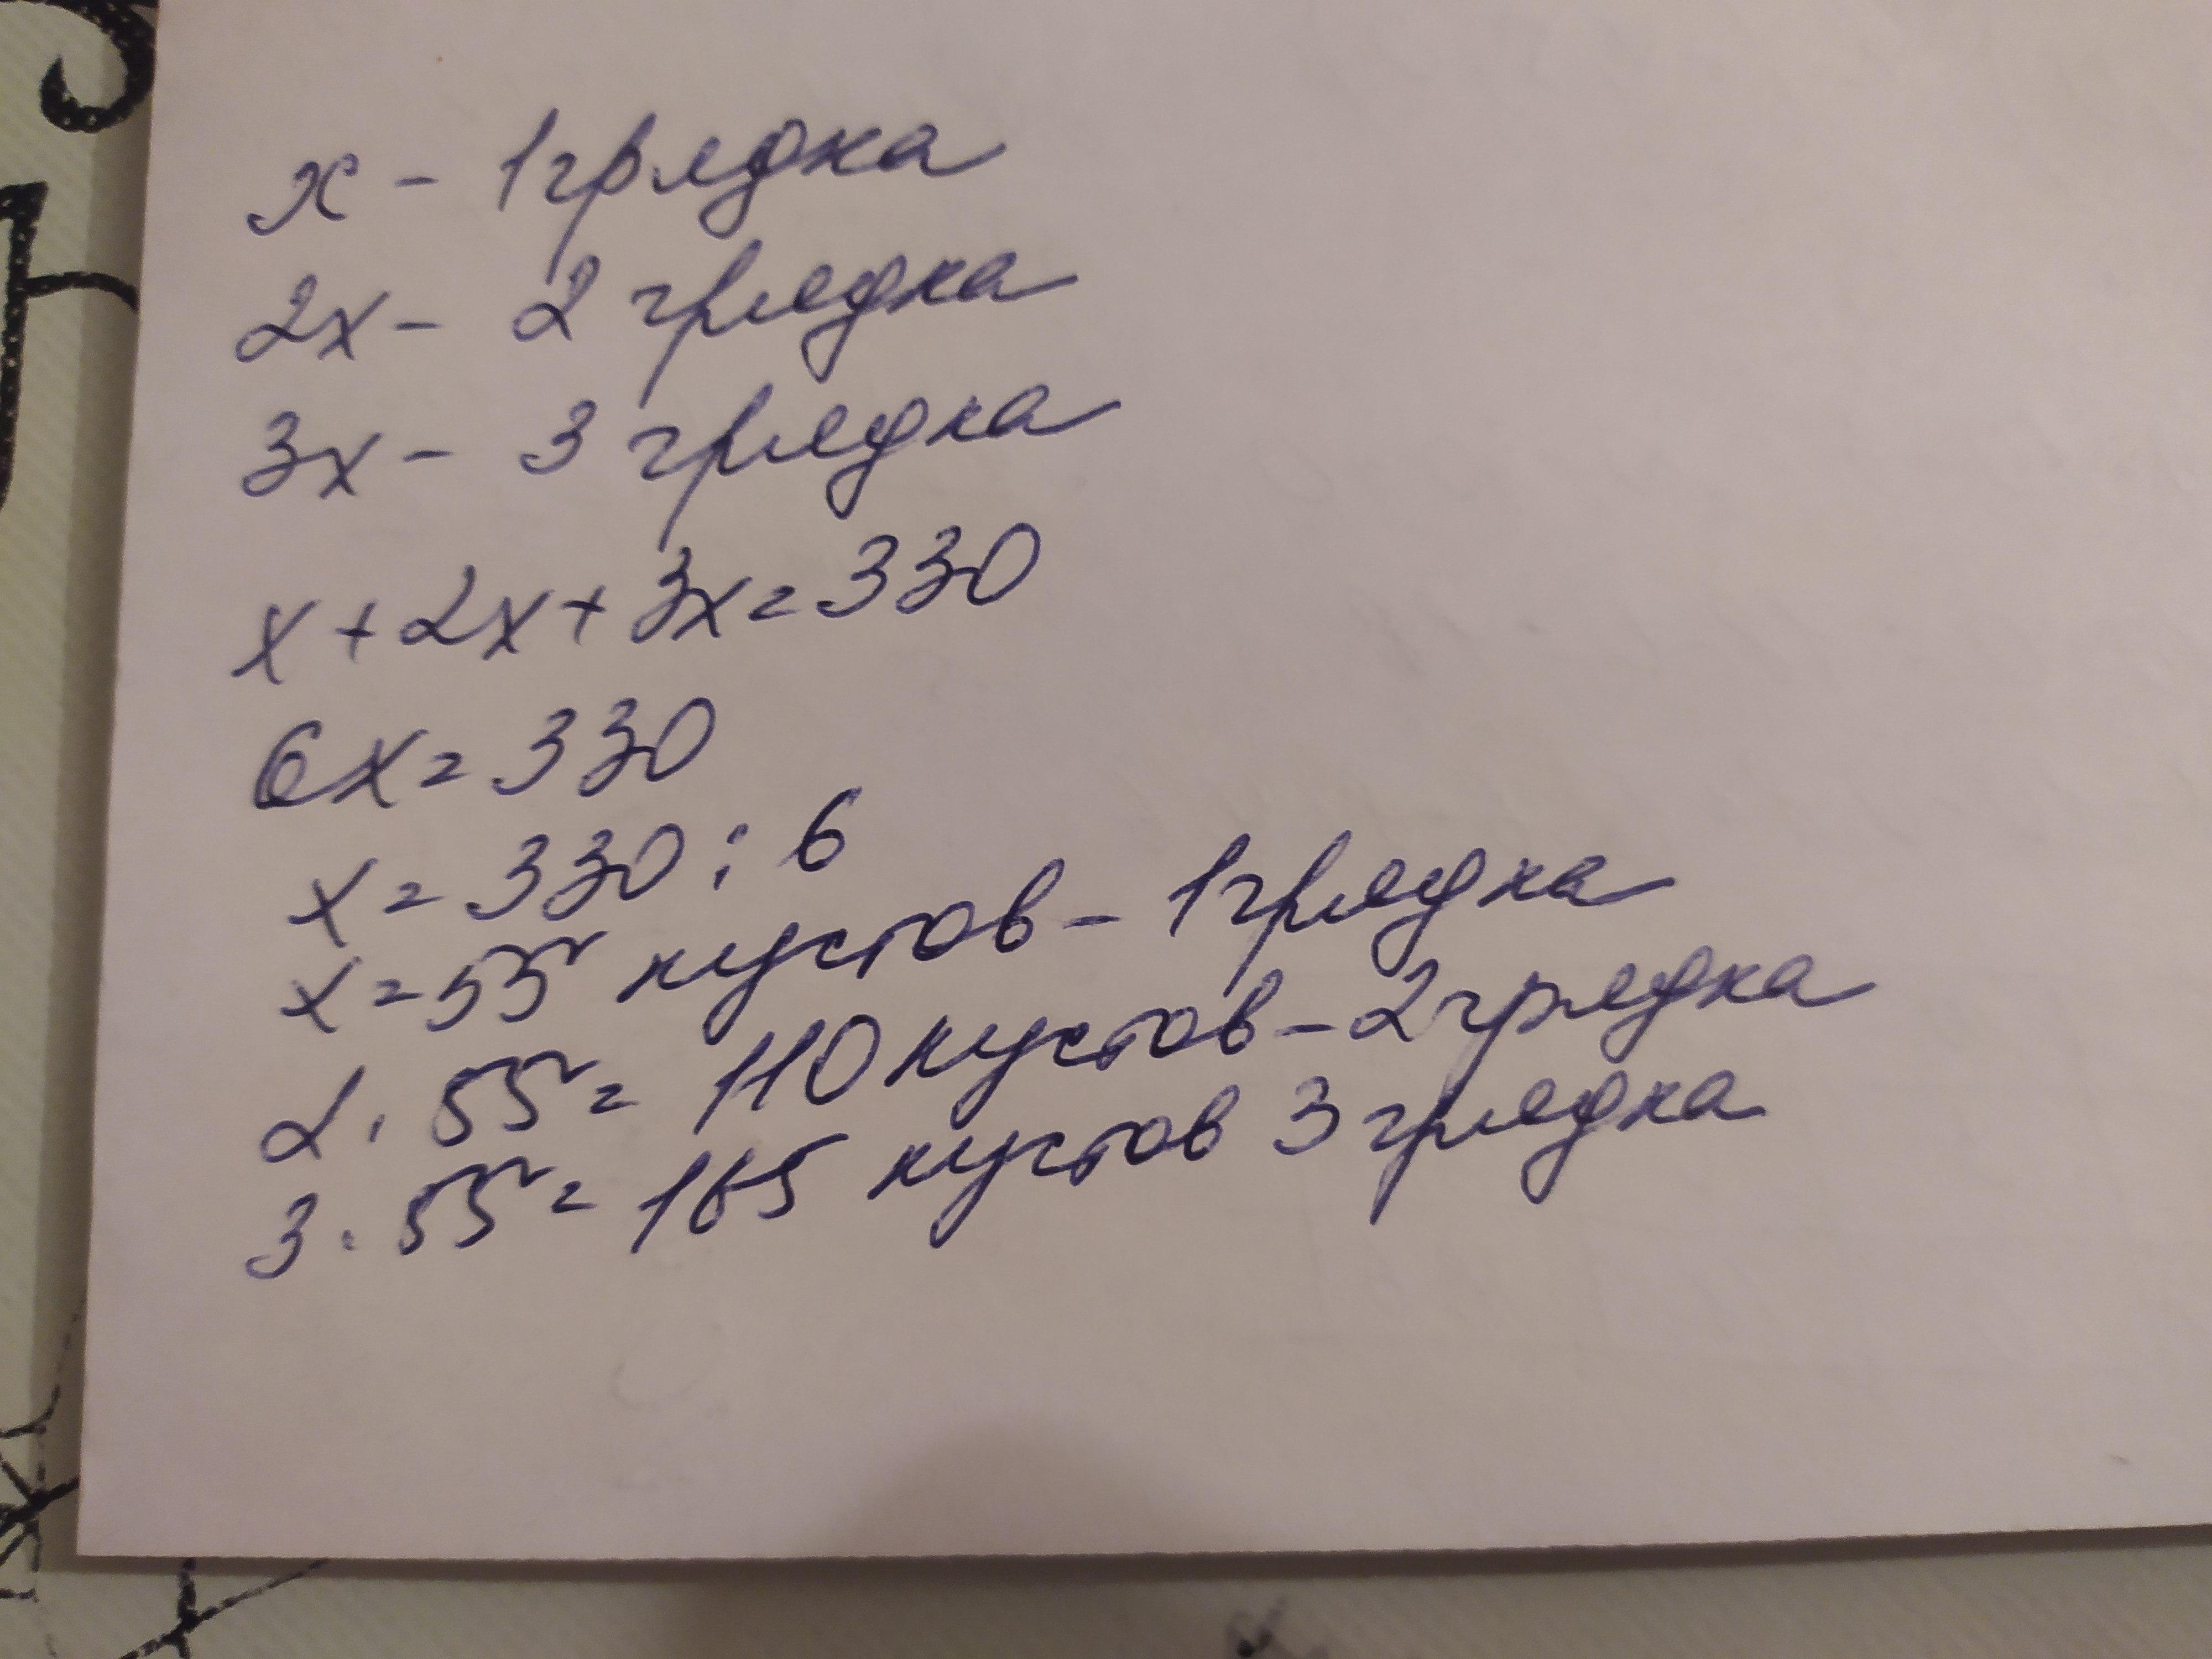 x - 1 грядка
2x - 2 грядка
3x - 3 грядка
x + 2x + 3x = 330
6x = 330
x = 330 : 6
x = 55 кустов - 1 грядка
2 · 55 = 110 кустов - 2 грядка
3 · 55 = 165 кустов 3 грядка